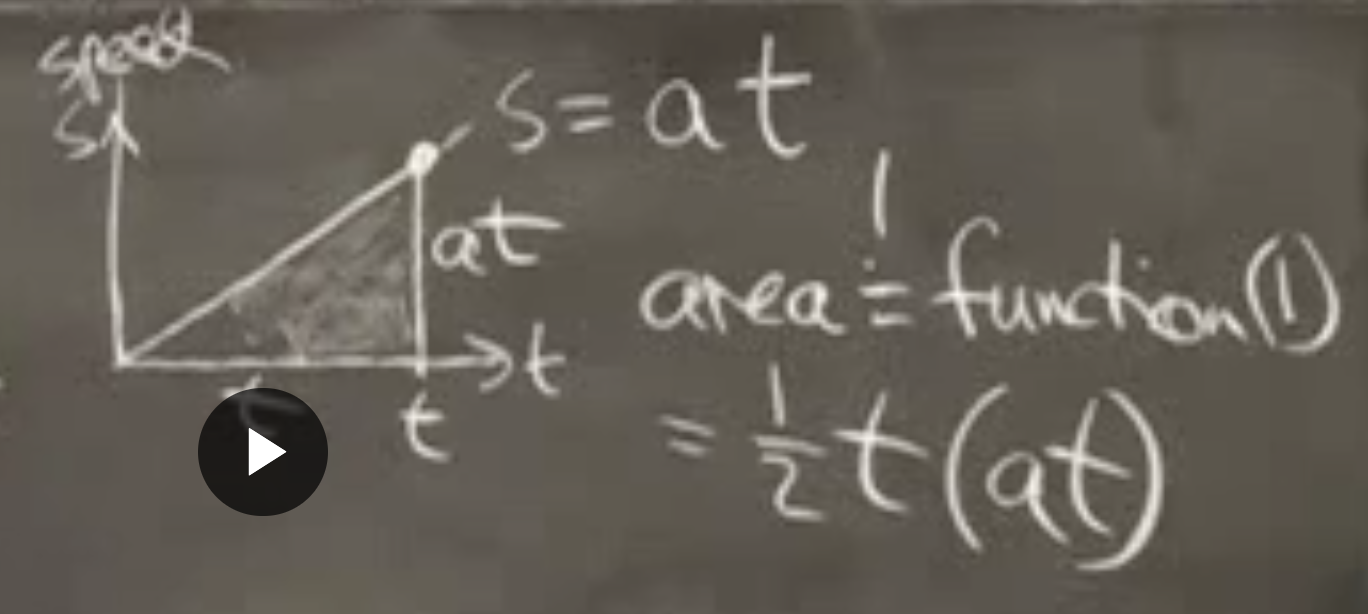 speed
s
s = at
at
area = function(1)
t
t
= 1/2 t(at)